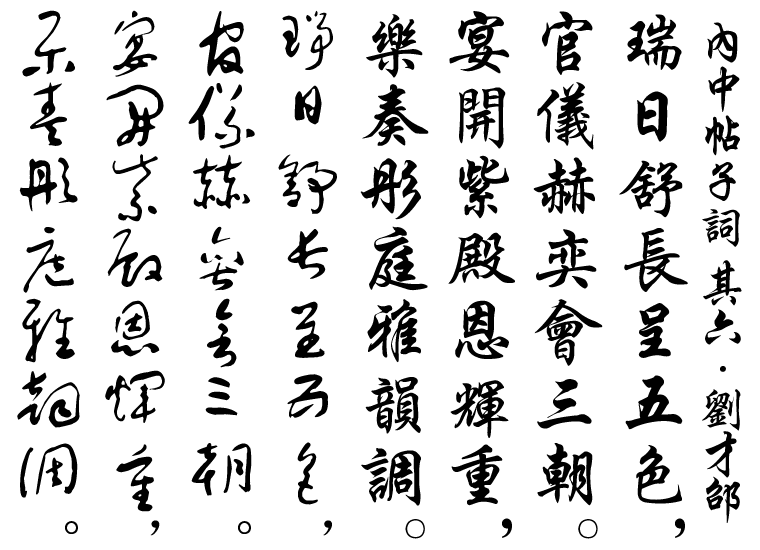 內中帖子詞 其六．劉才邵
瑞日舒長呈五色，
官儀赫奕會三朝。
宴開紫殿恩輝重，
樂奏彤庭雅韻調。
瑞日舒長呈五色，
官儀赫奕會三朝。
宴開紫殿恩輝重，
樂奏彤庭雅韻調。